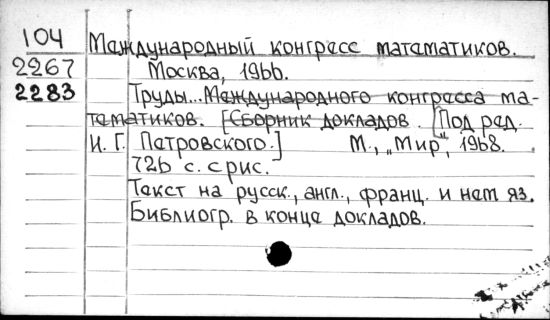 104 Международный конгресс математиков.
2267 Москва, 1966.
2283 Труды... Международного конгресса ма-
тематиков. [Сборник докладов. [Под ред.
И. Г. Петровского.] М., „Мир", 1968.
726 с. с рис.
Текст на русск., англ., франц. и нем яз.
Библиогр. в конце докладов.